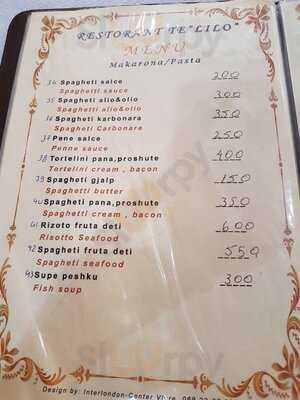 RESTORANT TE"LILO"
MENU
Makarona/Pasta
34 Spagheti salce 200
Spaghetti sauce
35 Spagheti alio&olio 300
Spaghetti alio&olio
36 Spagheti karbonara 350
Spagheti Carbonara
37 Pene salce 250
Penne sauce
38 Tortelini pana,proshute 400
Tortelini cream , bacon
39 Spagheti gjalp 150
Spaghetti butter
40 Spagheti pana,proshute 350
Spaghetti cream , bacon
41 Rizoto fruta deti 600
Risotto Seafood
42 Spagheti fruta deti 550
Spagheti seafood
43 Supe peshku 300
Fish soup
Design by: Interlondon-Center Vlore.